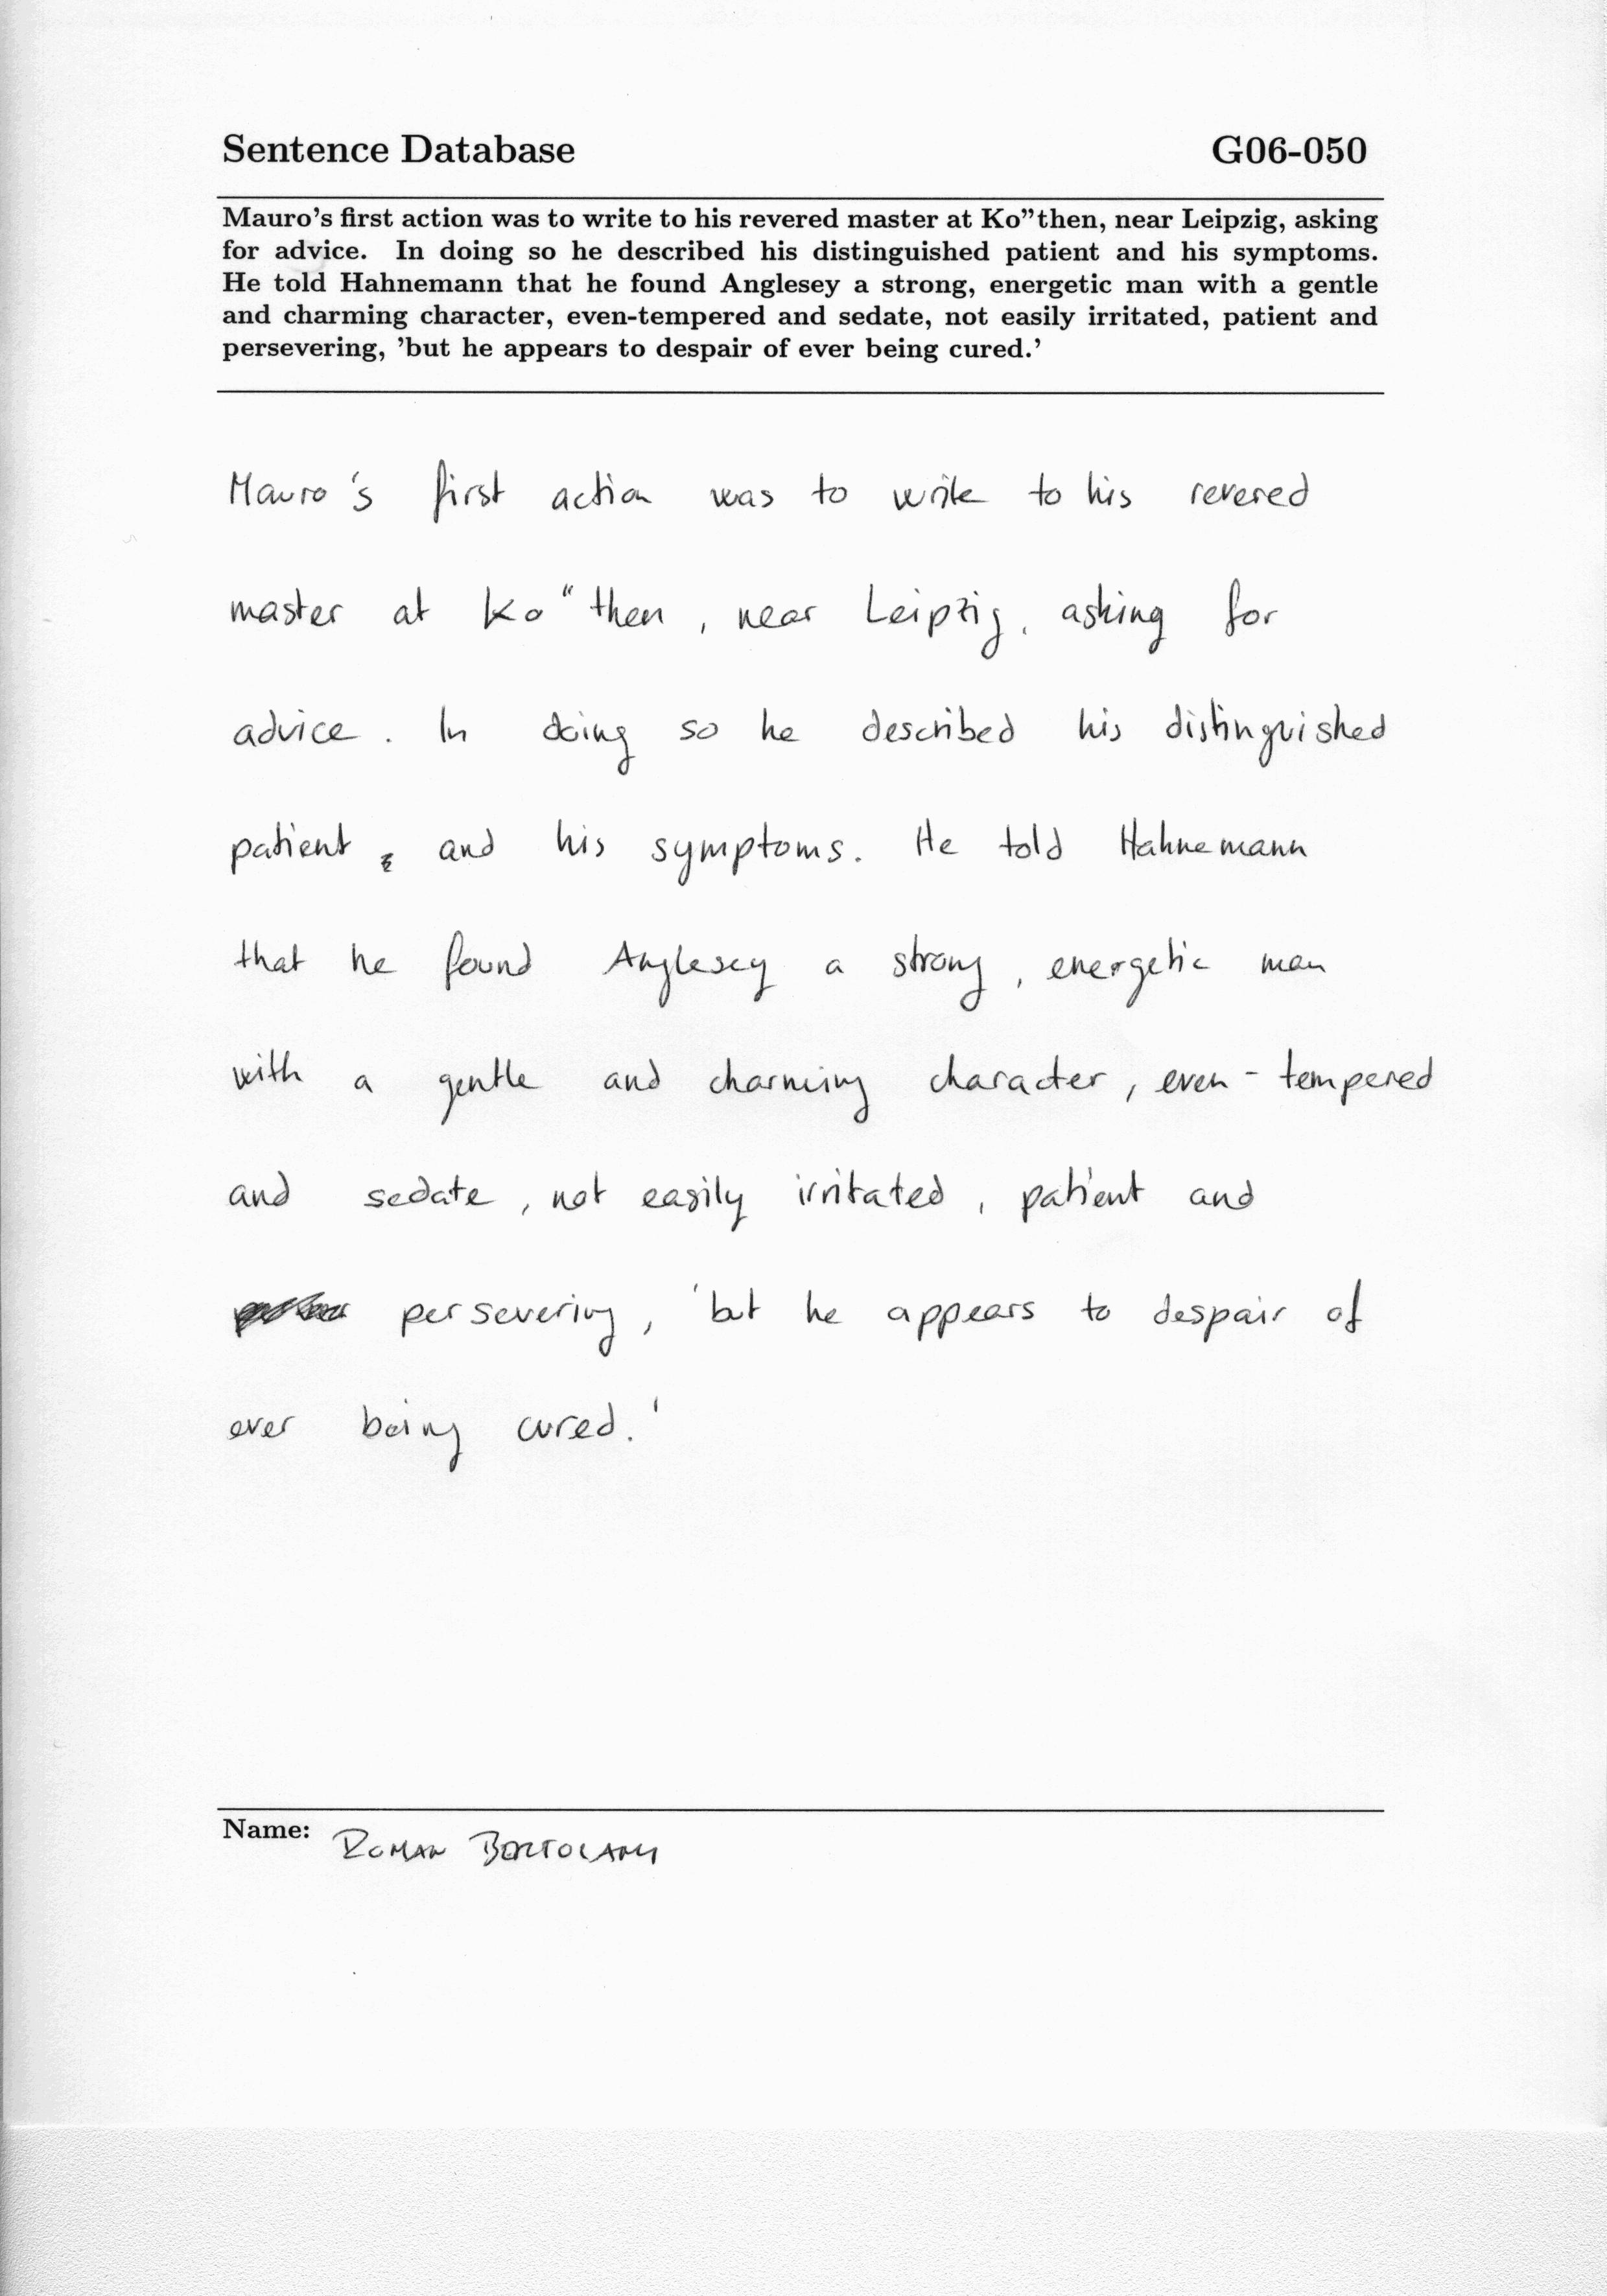 Sentence Database G06-050
Mauro's first action was to write to his revered master at Ko"then, near Leipzig, asking
for advice. In doing so he described his distinguished patient and his symptoms.
He told Hahnemann that he found Anglesey a strong, energetic man with a gentle
and charming character, even-tempered and sedate, not easily irritated, patient and
persevering, 'but he appears to despair of ever being cured.'
Mauro's first action was to write to his revered
master at Ko"then, near Leipzig, asking for
advice. In doing so he described his distinguished
patient and his symptoms. He told Hahnemann
that he found Anglesey a strong, energetic man
with a gentle and charming character, even-tempered
and sedate, not easily irritated, patient and
persevering, 'but he appears to despair of
ever being cured.'
Name: ROMAN BORTOLANI